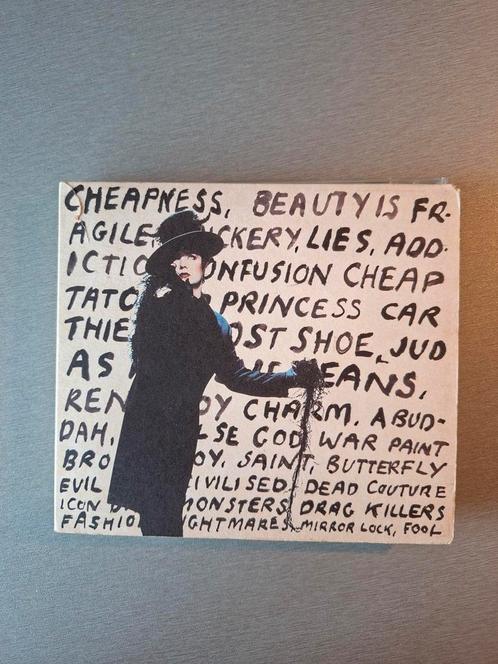 CHEAPNESS, BEAUTY IS FR-
AGILE, CKERY, LIES, ADD-
ICTIO ONFUSION CHEAP
TATO PRINCESS CAR
THIE OST SHOE, JUD
AS EANS,
REN OY CHARM, A BUD-
DAH, LSE GOD WAR PAINT
BRO OY, SAINT, BUTTERFLY
EVIL CIVILISED, DEAD COUTURE
ICON D MONSTERS, DRAG KILLERS
FASHIO IGHTMARES, MIRROR LOCK, FOOL